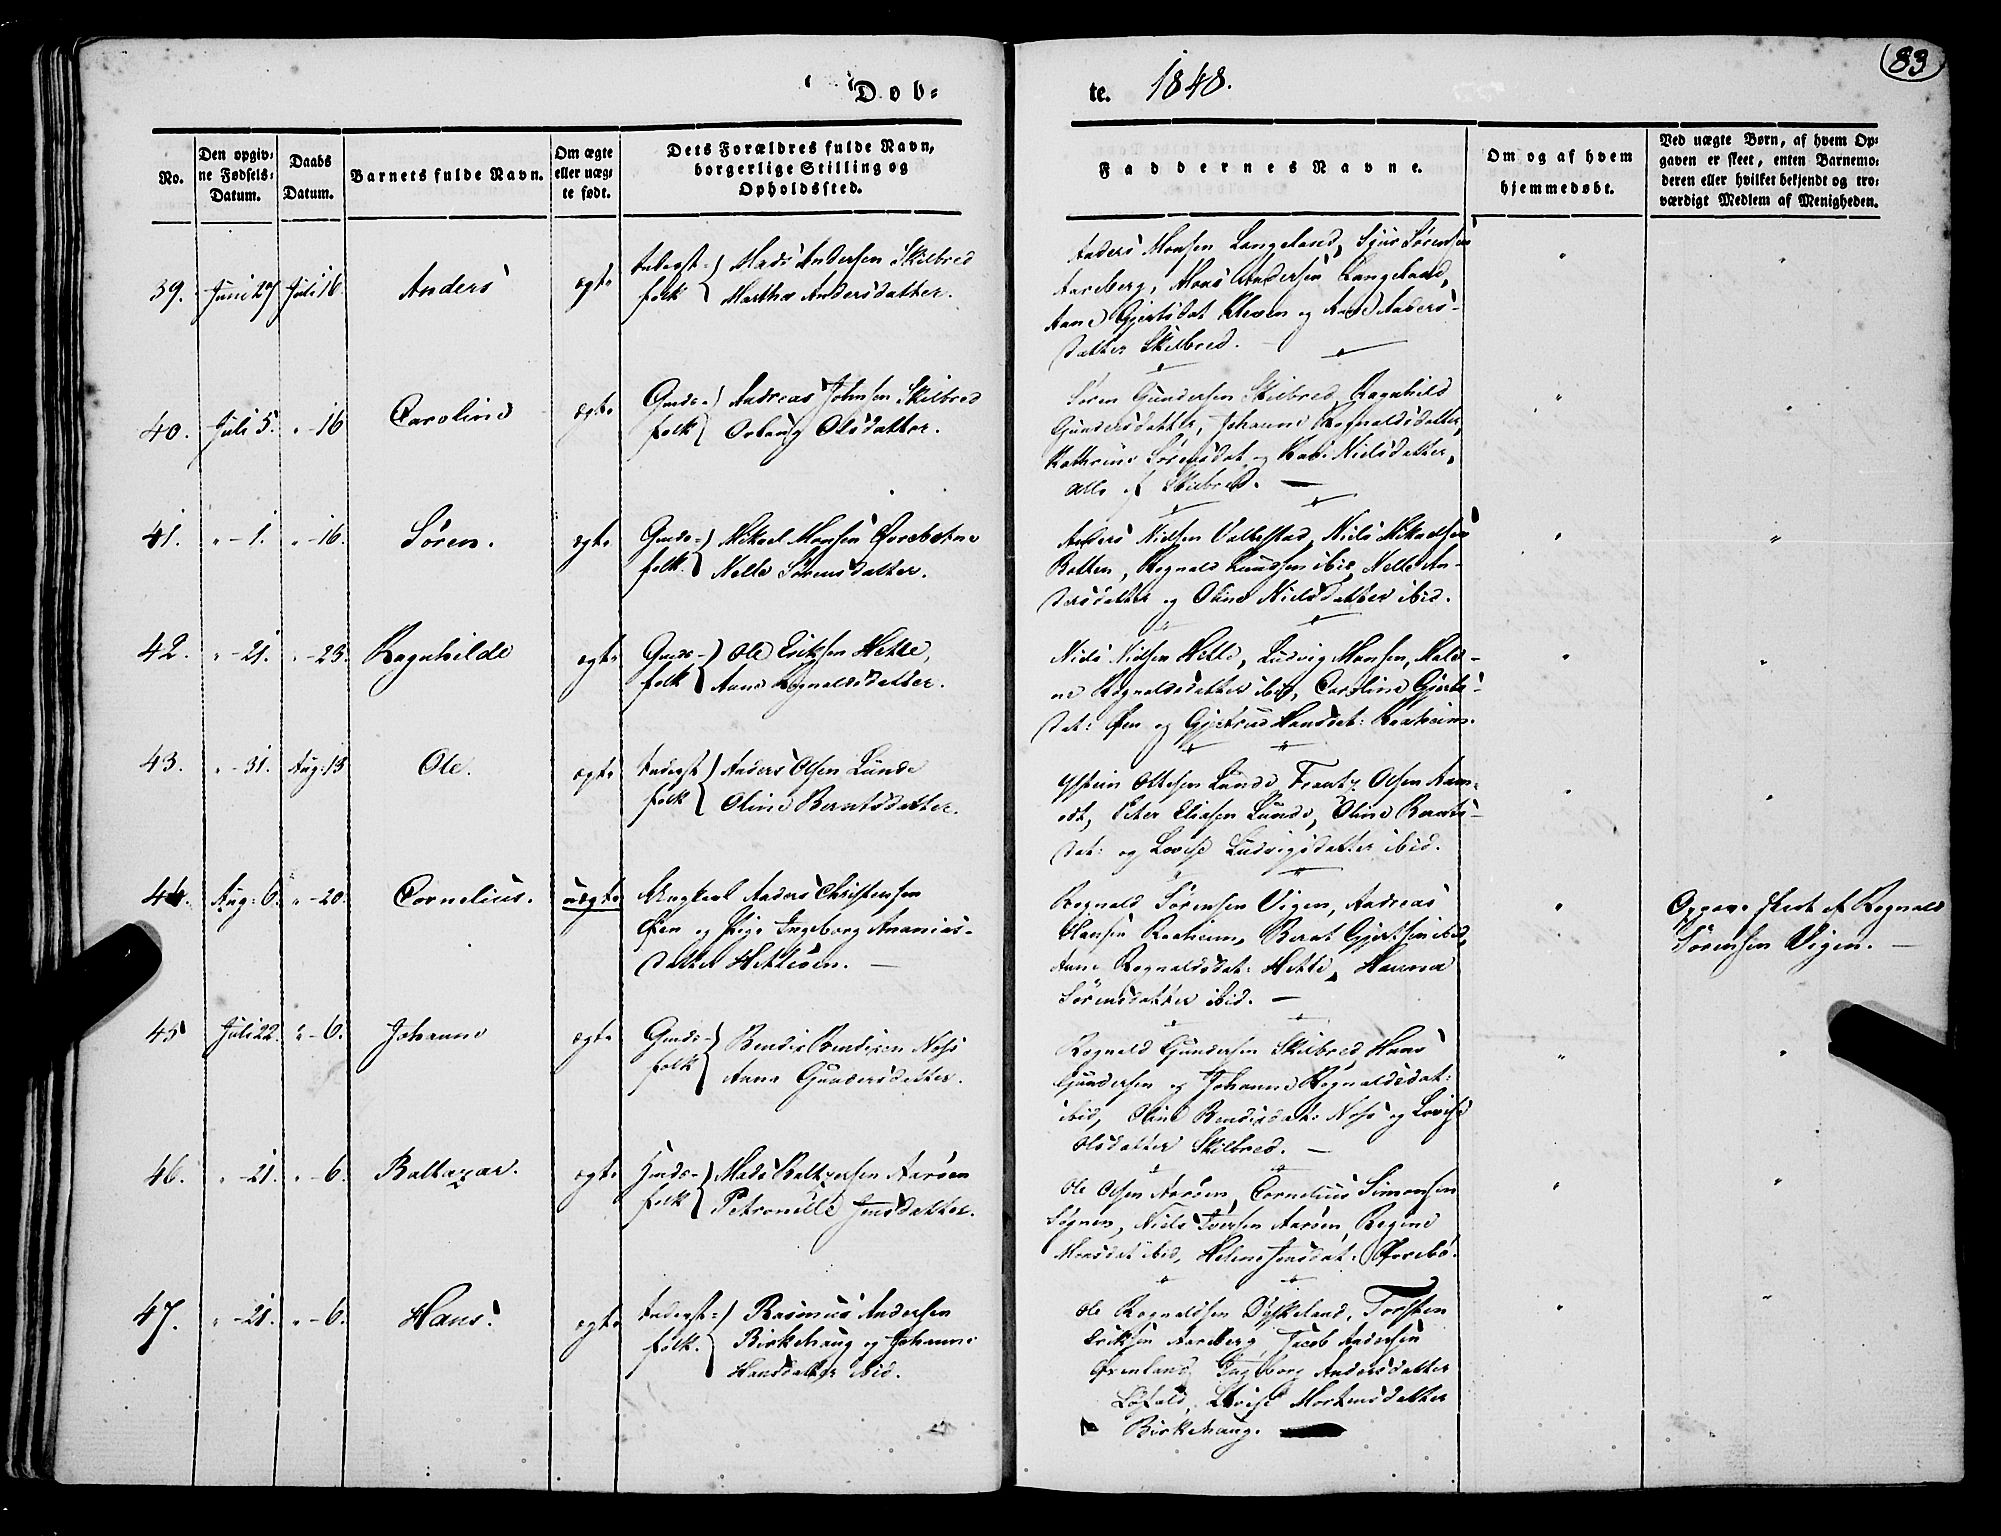 83
Døb-
te. 1848.
No.
Den opgiv-
ne Fødsels-
Datum.
Daabs
Datum.
Barnets fulde Navn.
Om ægte
eller uæg-
te født.
Dets Forældres fulde Navn,
borgerlige Stilling og
Opholdssted.
Faddernes Navne.
Om og af hvem
hjemmedøbt.
Ved uægte Børn, af hvem Op-
gaven er skeet, enten Barnemo-
deren eller hvilket bekjendt og tro-
værdigt Medlem af Menigheden.
39. Juni 27 Juli 16 Anders ægte Inderst- Mads Andersen Skilbred
folk Martha Andersdatter.
Anders Monsen Langeland, Sjur Sørensen
Aareberg, Mons Andersen Langeland,
Anne Gjertsdat Kleven og Anders-
datter Skilbred.
40. Juli 5. " - 16 Caroline ægte Gmds- Andreas Johnsen Skilbred
folk Olsdatter.
Søren Gundersen Skilbred, Ragnhild
Gundersdatter, Johanne Rognaldsdatter,
Kathrine Sørensdat og Nielsdatter,
alle af Skilbred.
41. " - 1. " - 16. Søren. ægte Gmds- Mikael Monsen Øvrebotne
folk. Nelle Sørensdatter.
Anders Nielsen Vallestad, Niels Mikaelsen
Botten, Rognald ibid, Nelle An-
dersdatter og Oline Nielsdatter ibid.
42. " - 21. " - 23. Ragnhilde ægte Gmds- Ole Eriksen Hetle,
folk Anne Rognaldsdatter.
Niels Nielsen Hetle, Ludvig Monsen, Male-
ne Rognaldsdatter ibid, Caroline Gjerts-
dat: Øen og Gjertrud Hansdat: Raaheim.
43. " - 31. Aug: 13 Ole. ægte Inderst Anders Olsen Lunde
folk Oline Berntsdatter.
Ottesen Lunde, Frantz Olsen Aam-
odt, Peter Eliasen Lunde, Oline Bernts-
dat: og Lovise Ludvigsdatter ibid.
44. Aug: 6. " - 20. Cornelius. uægte Ungkarl Anders Christensen
Øen og Pige Ingeborg Ananias-
datter Hetlesen.
Rognald Sørensen Vigen, Andreas
Hansen Raaheim, Bernt Gjertsen ibid,
Anne Rognaldsdat: Hetle, Hanna
Sørensdatter ibid.
Opgave skeet af Rognald
Sørensen Vigen.
45 Juli 22. " - 6. Johanne ægte Gmds- Bendix Bendixen Noss
folk Anna Gundersdatter.
Rognald Gundersen Skilbred, Hans
Gundersen og Johanne Rognaldsdat:
ibid, Oline Bendixdat: Noss og Lovise
Olsdatter Skilbred.
46. " - 21. " - 6. Baltazar. ægte Hmds- Mads Baltzersen Aarøen
folk Petronille Jensdatter.
Ole Olsen Aarøen, Cornelius Simonsen
Sognen, Niels Iversen Aarøen, Regine
Monsdat ibid, Helene Jensdat: Øvrebø.
47. " - 21. " - 6. Hans. ægte Inderst- Rasmus Andersen
folk. Birkehaug og Johanne
Hansdatter ibid.
Ole Rognaldsen Dyskeland, Torsten
Eriksen Aareberg, Jacob Andersen
Øvreland, Ingeborg Andersdatter
Løfald, Lovise Mortensdatter
Birkehaug.